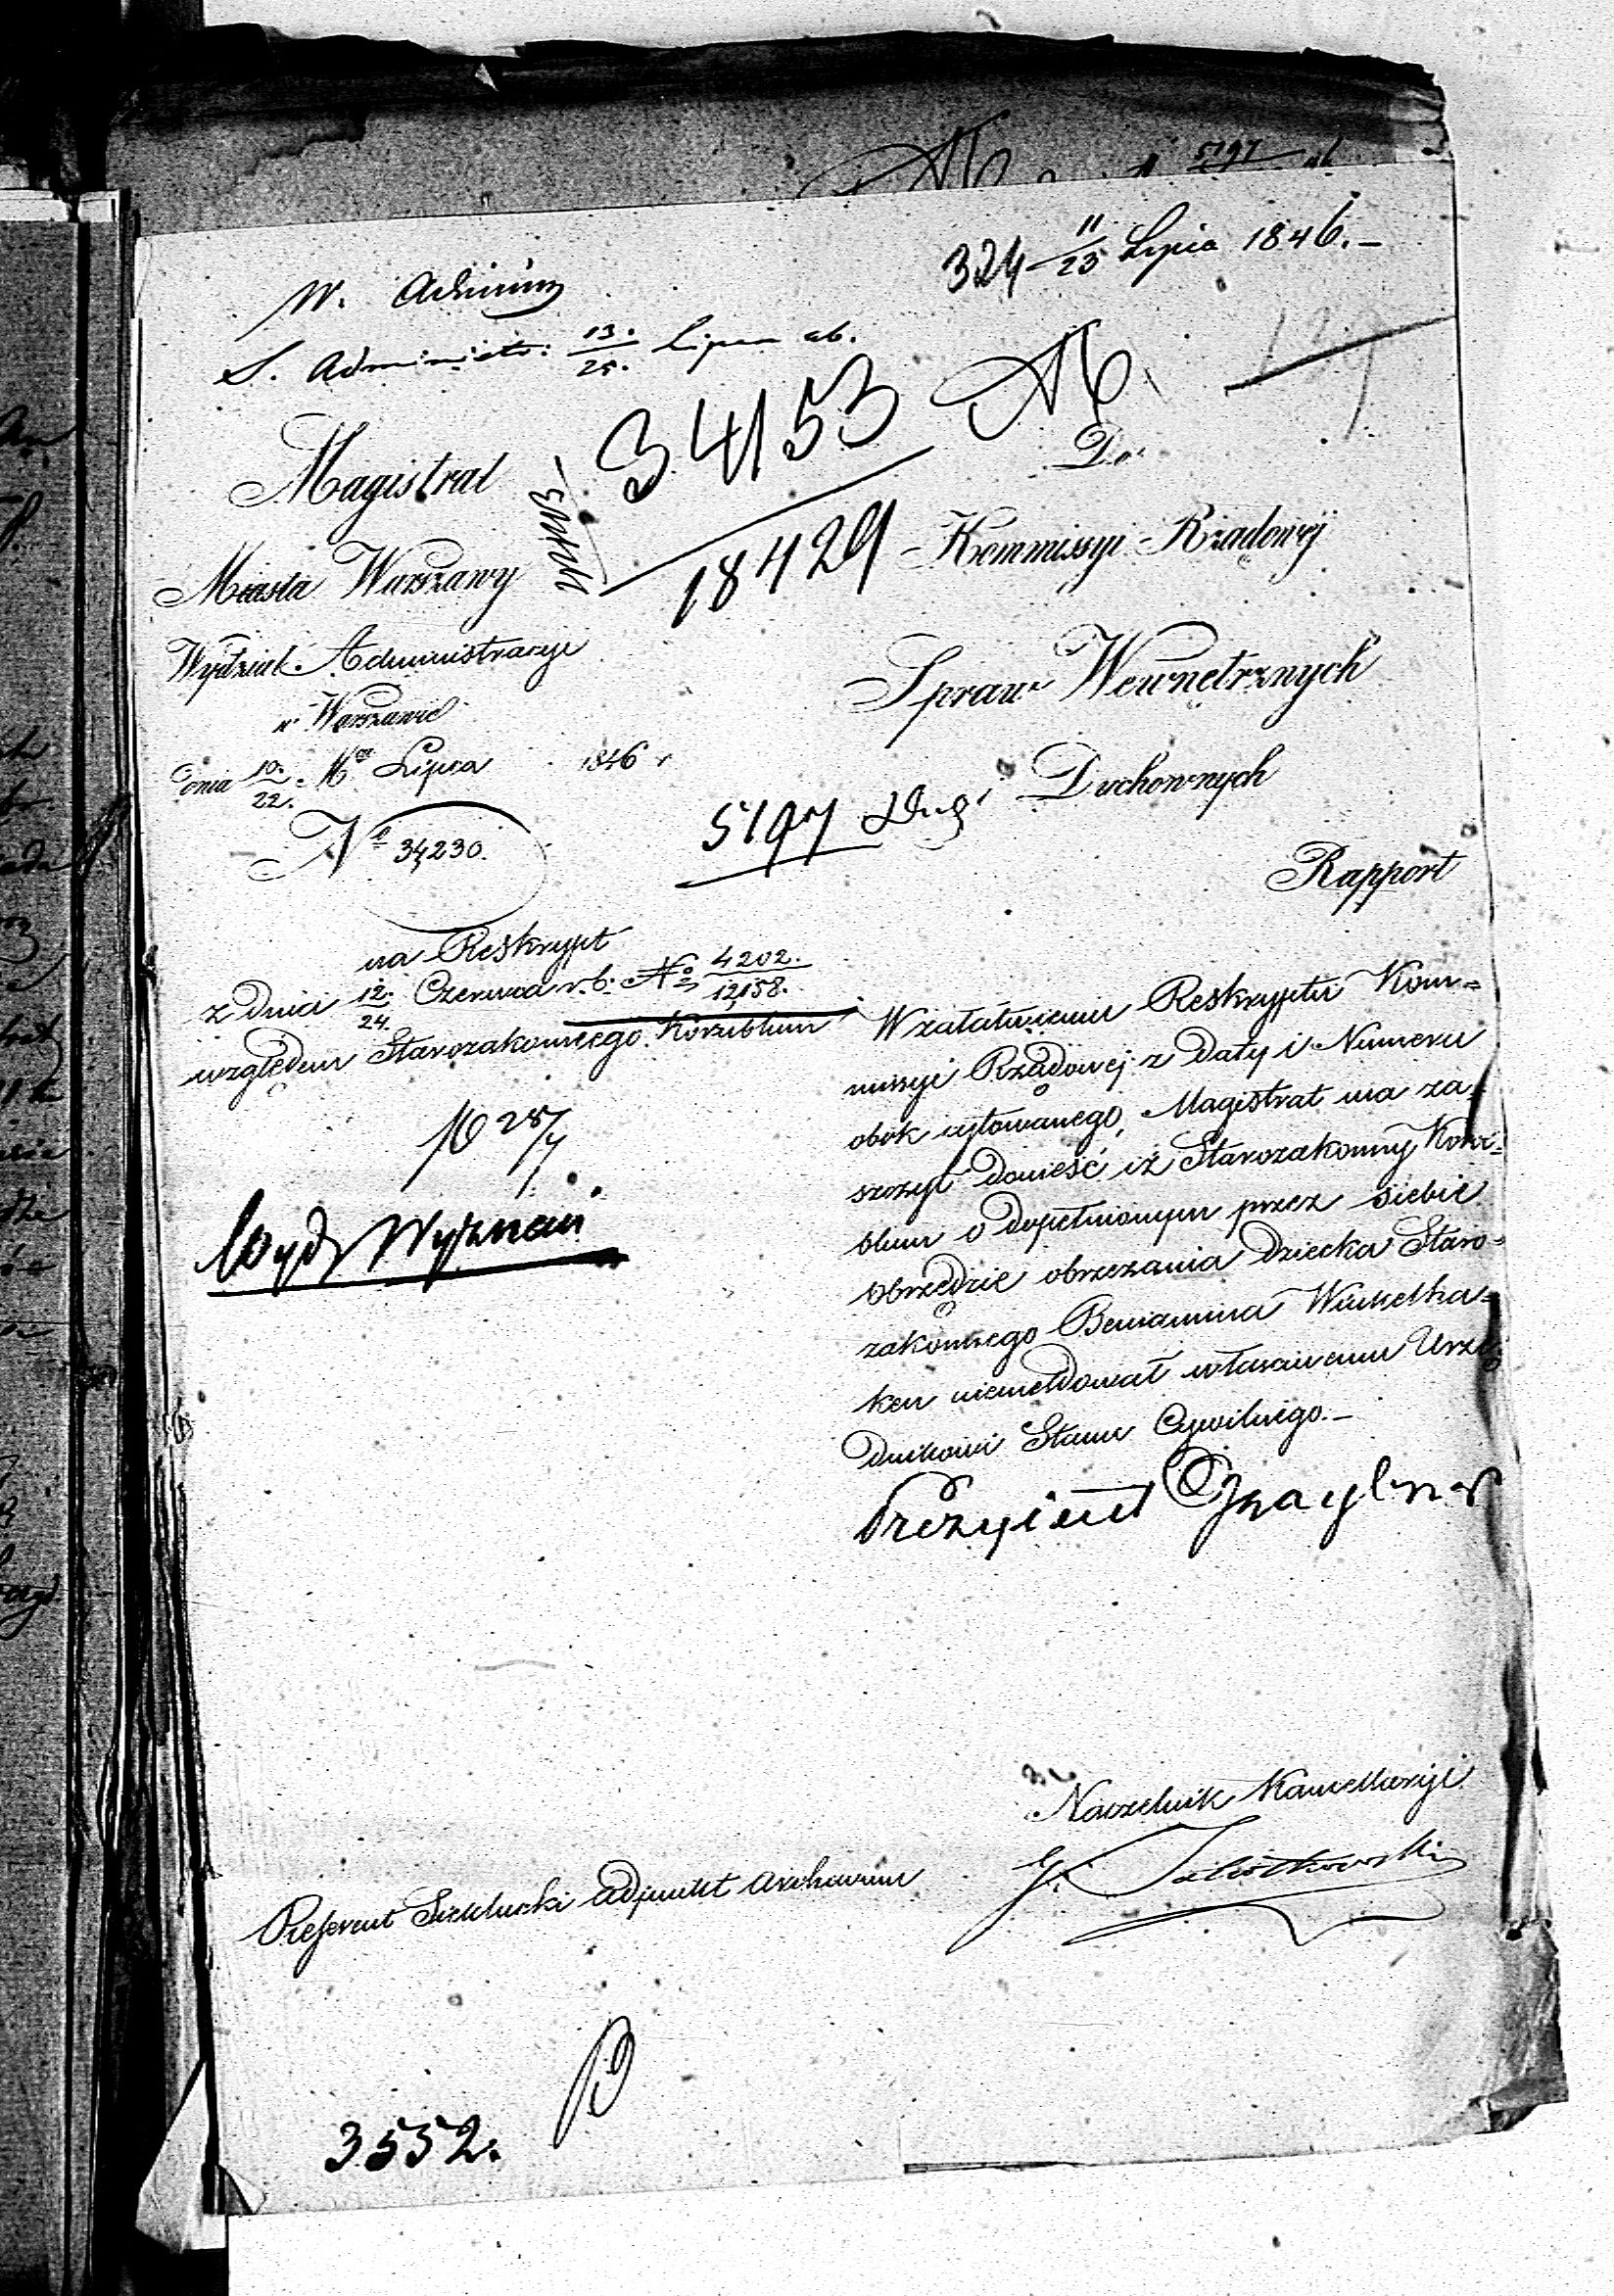 324 11/23 Lipca 1846.-
W. Admin
S. Administr: 13./25. Lipca ab.
34153
18429
Magistrat
Miasta Warszawy
Wydział Administracyi
w Warszawie
dnia 10./22. Mca Lipca 1846 r
No 34,230.
Do
Kommissyi Rządowéj
Spraw Wewnętrznych
i Duchownych
5197
Rapport
na Reskrypt
z dnia 12./24. Czerwca r. b. No 4202./12,158.
względem Starozakonnego Korzeblum
28/7
Wyd. Wyznań
W załatwieniu Reskryptu Kom=
missyi Rządowej z daty i Numeru
obok cytowanego, Magistrat ma za=
szczyt donieść iż Starozakonny Korze=
blum o dopełnionym przez siebie
obrzędzie obrzezania dziecka Staro=
zakonnego Beniamina Winkelha=
ken niemeldował właściwemu Urzę=
dnikowi Stanu Cywilnego.-
Prezydent
Naczelnik Kancellaryi
Referent Adjunkt Archiwum
3552.